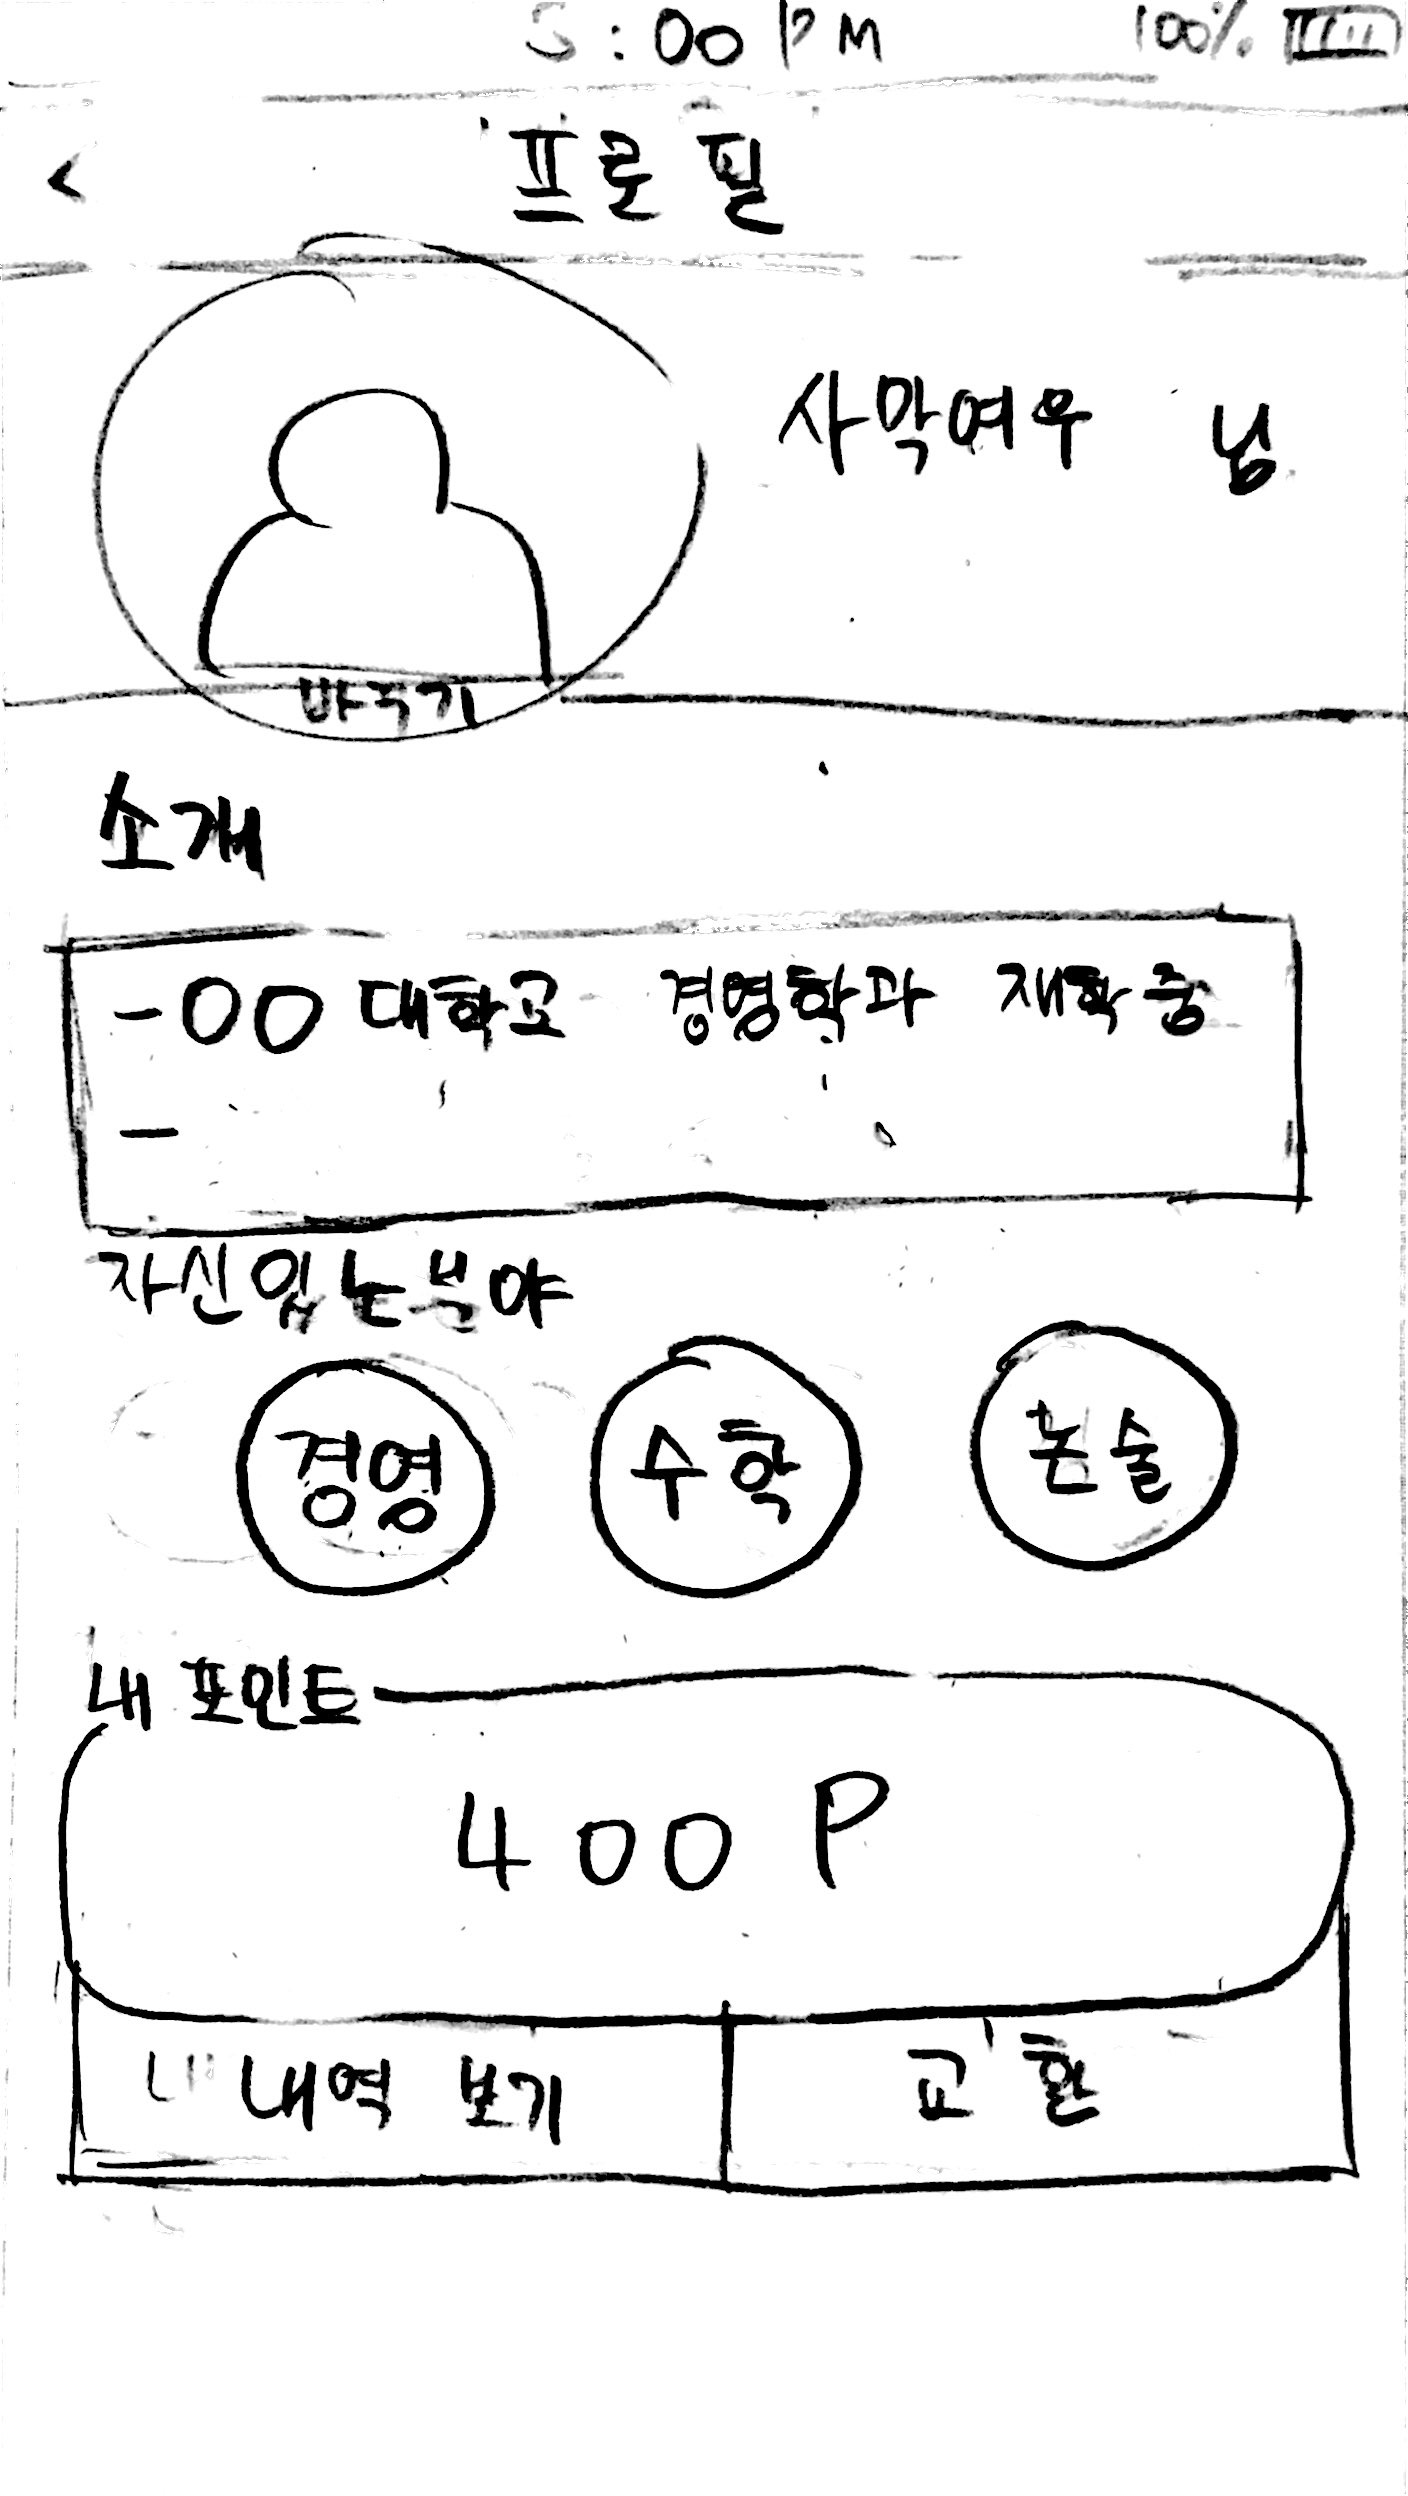 5:00 PM 100%
<
프로필
사막여우 님
바꾸기
소개
- OO대학교 경영학과 재학중
-
자신있는분야
경영 수학 논술
내 포인트
400 P
내역 보기 교환